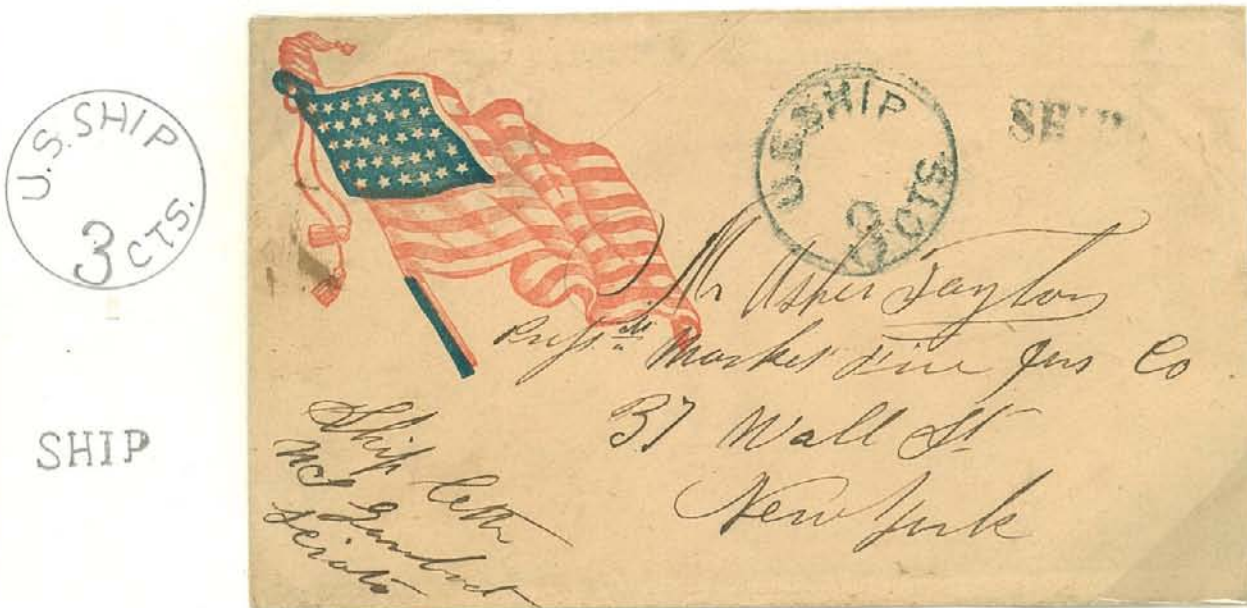 U.S. SHIP
3 CTS.
SHIP
U.S. SHIP
3 CTS
SHIP
Mr Asher Taylor
Market Fire Ins Co
37 Wall St
New York
Ship letter